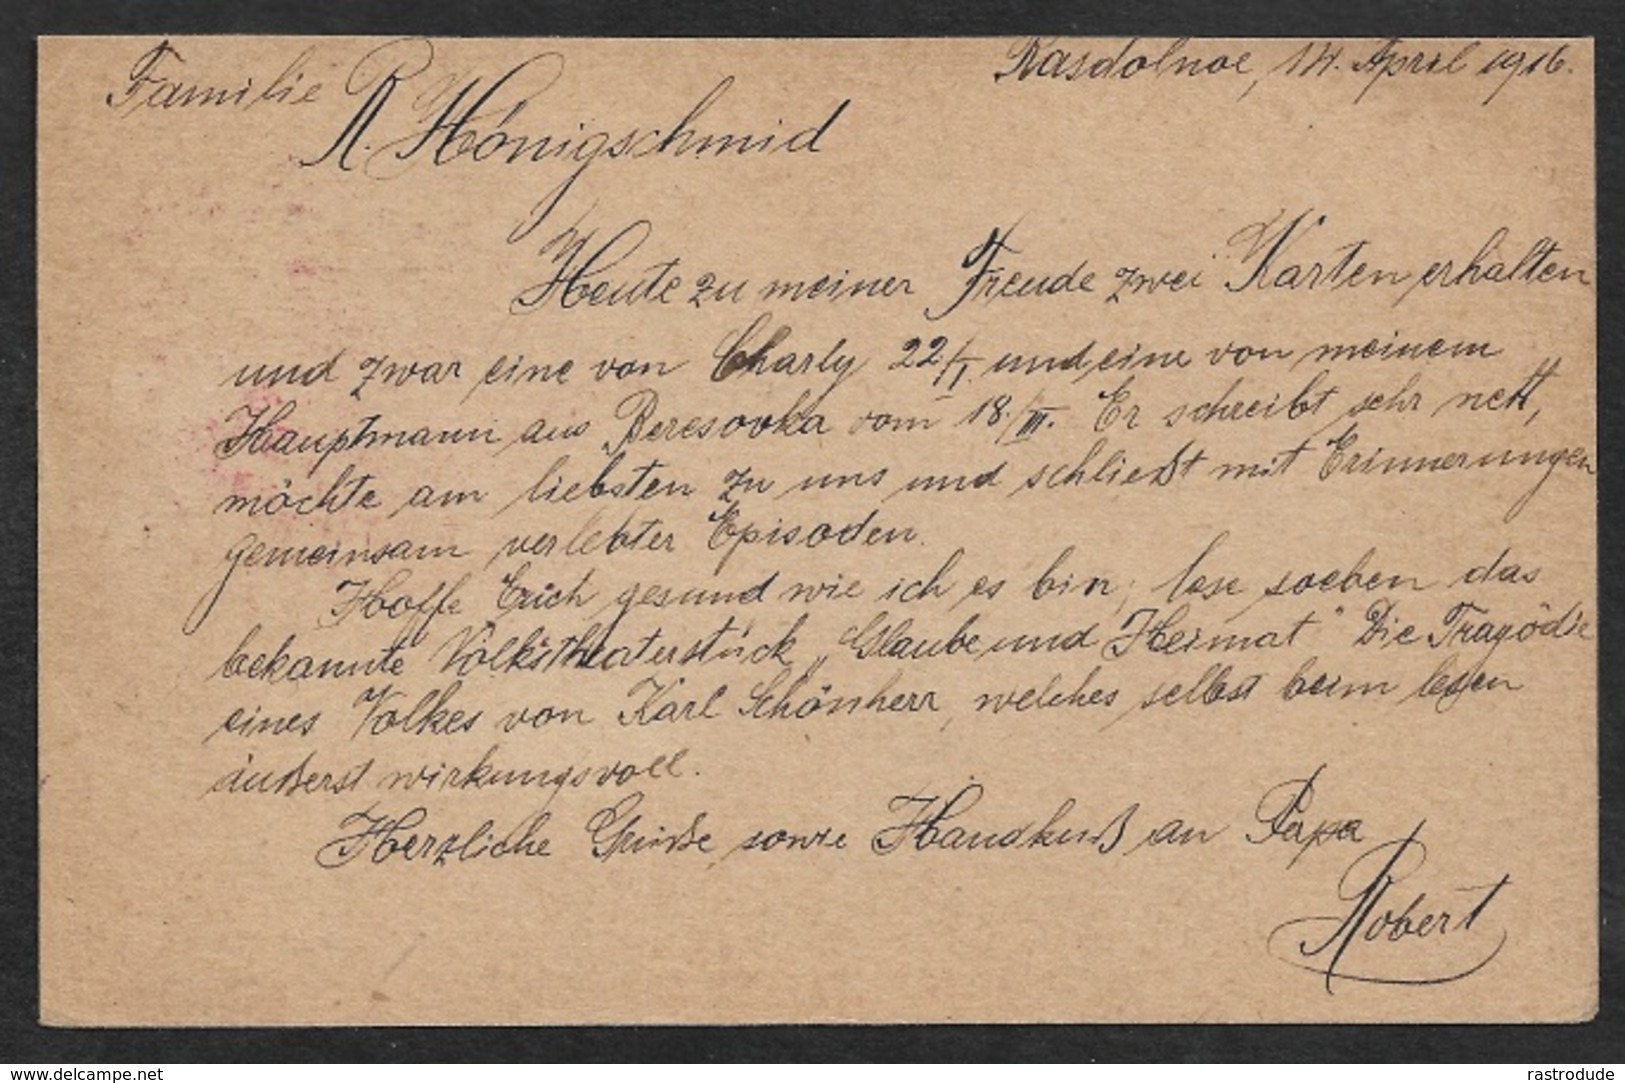 Rasdolnoe, 14. April 1916.
Familie
R. Hönigschmid
Heute zu meiner Freude zwei Karten erhalten
und zwar eine von Charly 22/I. und eine von meinem
Hauptmann aus Beresovka vom 18./III. Er schreibt sehr nett,
möchte am liebsten zu uns und schließt mit Erinnerungen
gemeinsam verlebter Episoden.
Hoffe Euch gesund wie ich es bin, lese soeben das
bekannte Volkstheaterstück „Glaube und Heimat" Die Tragödie
eines Volkes von Karl Schönherr, welches selbst beim lesen
äußerst wirkungsvoll.
Herzliche Grüße sowie Handkuß an Papa
Robert
www.delcampe.net
rastrodude